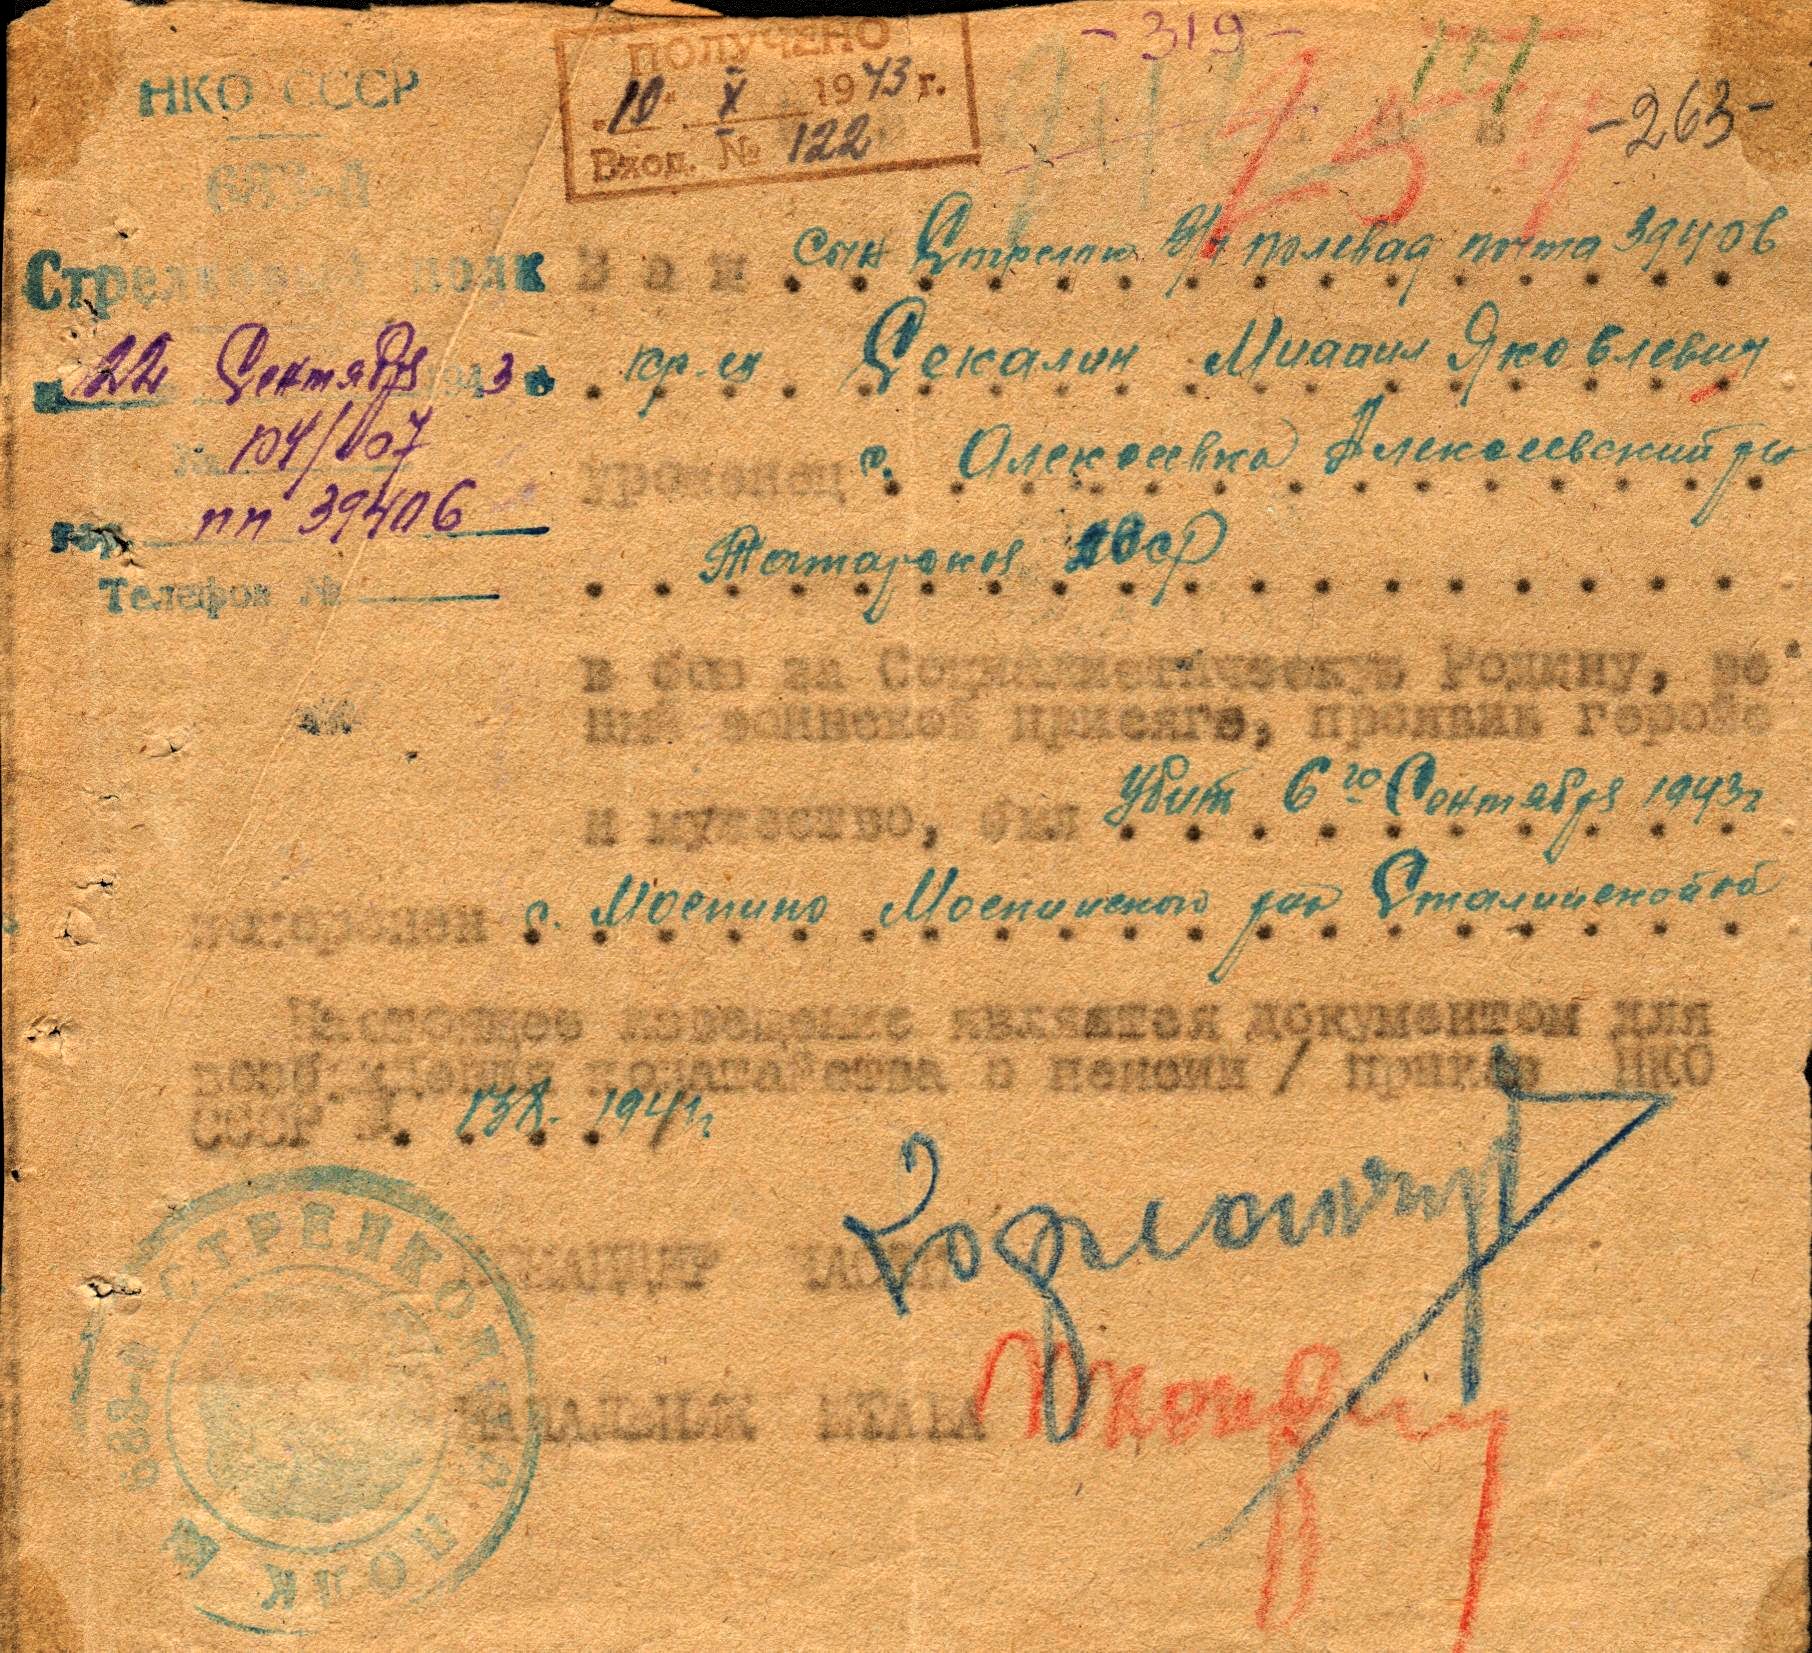 - 319 -
ПОЛУЧЕНО
"10" X 1943 г.
Вход. № 122
- 263 -
НКО СССР
Стрелковый полк
22 Сентября 1943
№ 104/
пп 39406
гор.
Телефон №
Ваш сын Стрелок в/ч полевая почта 39406
кр-ец Секалин Михаил Яковлевич
уроженец с. Алексеевка Алексеевский р-н
Татарская АССР
в бою за Социалистическую Родину, вер
ный воинской присяге, проявив геройс
и мужество, был Убит 6го Сентября 1943г
похоронен с. Моспино Моспинского р-на Сталинской об
Настоящее извещение является документом для
возбуждения ходатайства о пенсии / приказ НКО
СССР № 138. 1941г
КОМАНДИР ЧАСТИ
НАЧАЛЬНИК ШТАБА
СТРЕЛКОВЫЙ ПОЛК